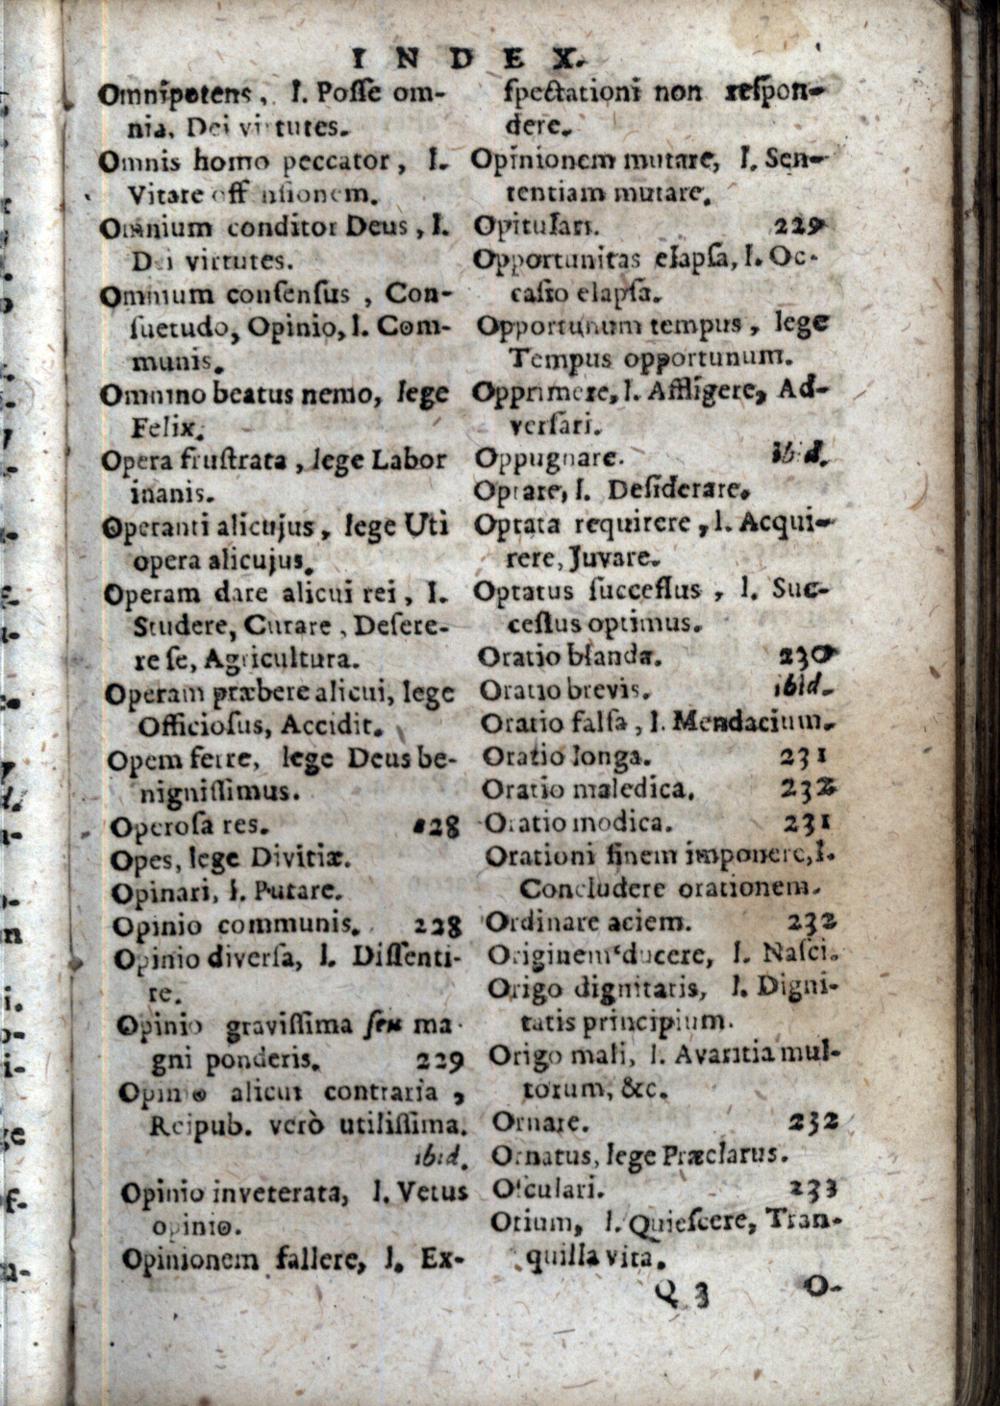 INDEX.
Omnipotens, l. Posse om-
nia. Dei virtutes.
Omnis homo peccator, l.
Vitare offensionem.
Omnium conditor Deus, l.
Dei virtutes.
Omnium consensus, Con-
suetudo, Opinio, l. Com-
munis.
Omnino beatus nemo, lege
Felix.
Opera frustrata, lege Labor
inanis.
Operanti alicujus, lege Uti
opera alicujus.
Operam dare alicui rei, l.
Studere, Curare, Desere-
re se, Agricultura.
Operam præbere alicui, lege
Officiosus, Accidit.
Opem ferre, lege Deus be-
nignissimus.
Operosa res. 228
Opes, lege Divitiæ.
Opinari, l. Putare.
Opinio communis. 228
Opinio diversa, l. Dissenti-
re.
Opinio gravissima seu ma-
gni ponderis. 229
Opinio alicui contraria,
Reipub. verò utilissima.
ibid.
Opinio inveterata, l. Vetus
opinio.
Opinionem fallere, l. Ex-
spectationi non respon-
dere.
Opinionem mutare, l. Sen-
tentiam mutare.
Opitulari. 229
Opportunitas elapsa, l. Oc-
casio elapsa.
Opportunum tempus, lege
Tempus opportunum.
Opprimere, l. Affligere, Ad-
versari.
Oppugnare. ibid.
Optare, l. Desiderare.
Optata requirere, l. Acqui-
rere, Juvare.
Optatus successus, l. Suc-
cessus optimus.
Oratio blanda. 230
Oratio brevis. ibid.
Oratio falsa, l. Mendacium.
Oratio longa. 231
Oratio maledica. 232
Oratio modica. 231
Orationi finem imponere, l.
Concludere orationem.
Ordinare aciem. 232
Originem ducere, l. Nasci.
Origo dignitatis, l. Digni-
tatis principium.
Origo mali, l. Avaritia mul-
torum, &c.
Ornare. 232
Ornatus, lege Præclarus.
Osculari. 233
Otium, l. Quiescere, Tran-
quilla vita.
Q 3 O-